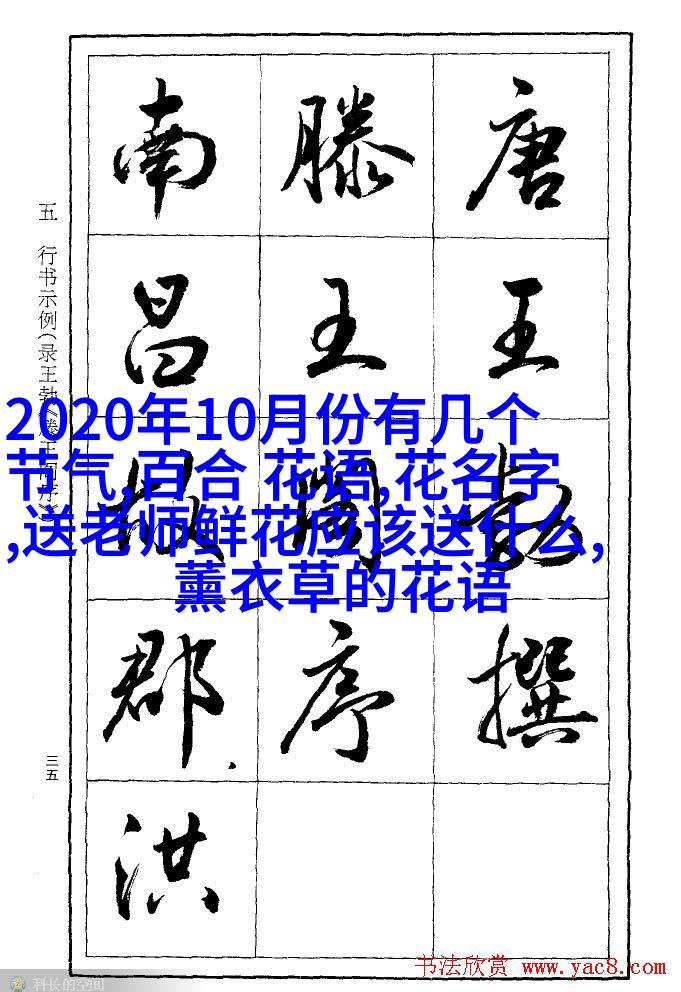 五 行书示例(录王勃《滕王阁序》)
唐王勃撰
滕王阁序
南昌故郡洪
三五
2020年10月份有几个
节气,百合 花语,花名字
,送老师鲜花应该送什么,
薰衣草的花语
书法欣赏 www.yac8.com
科长的空间